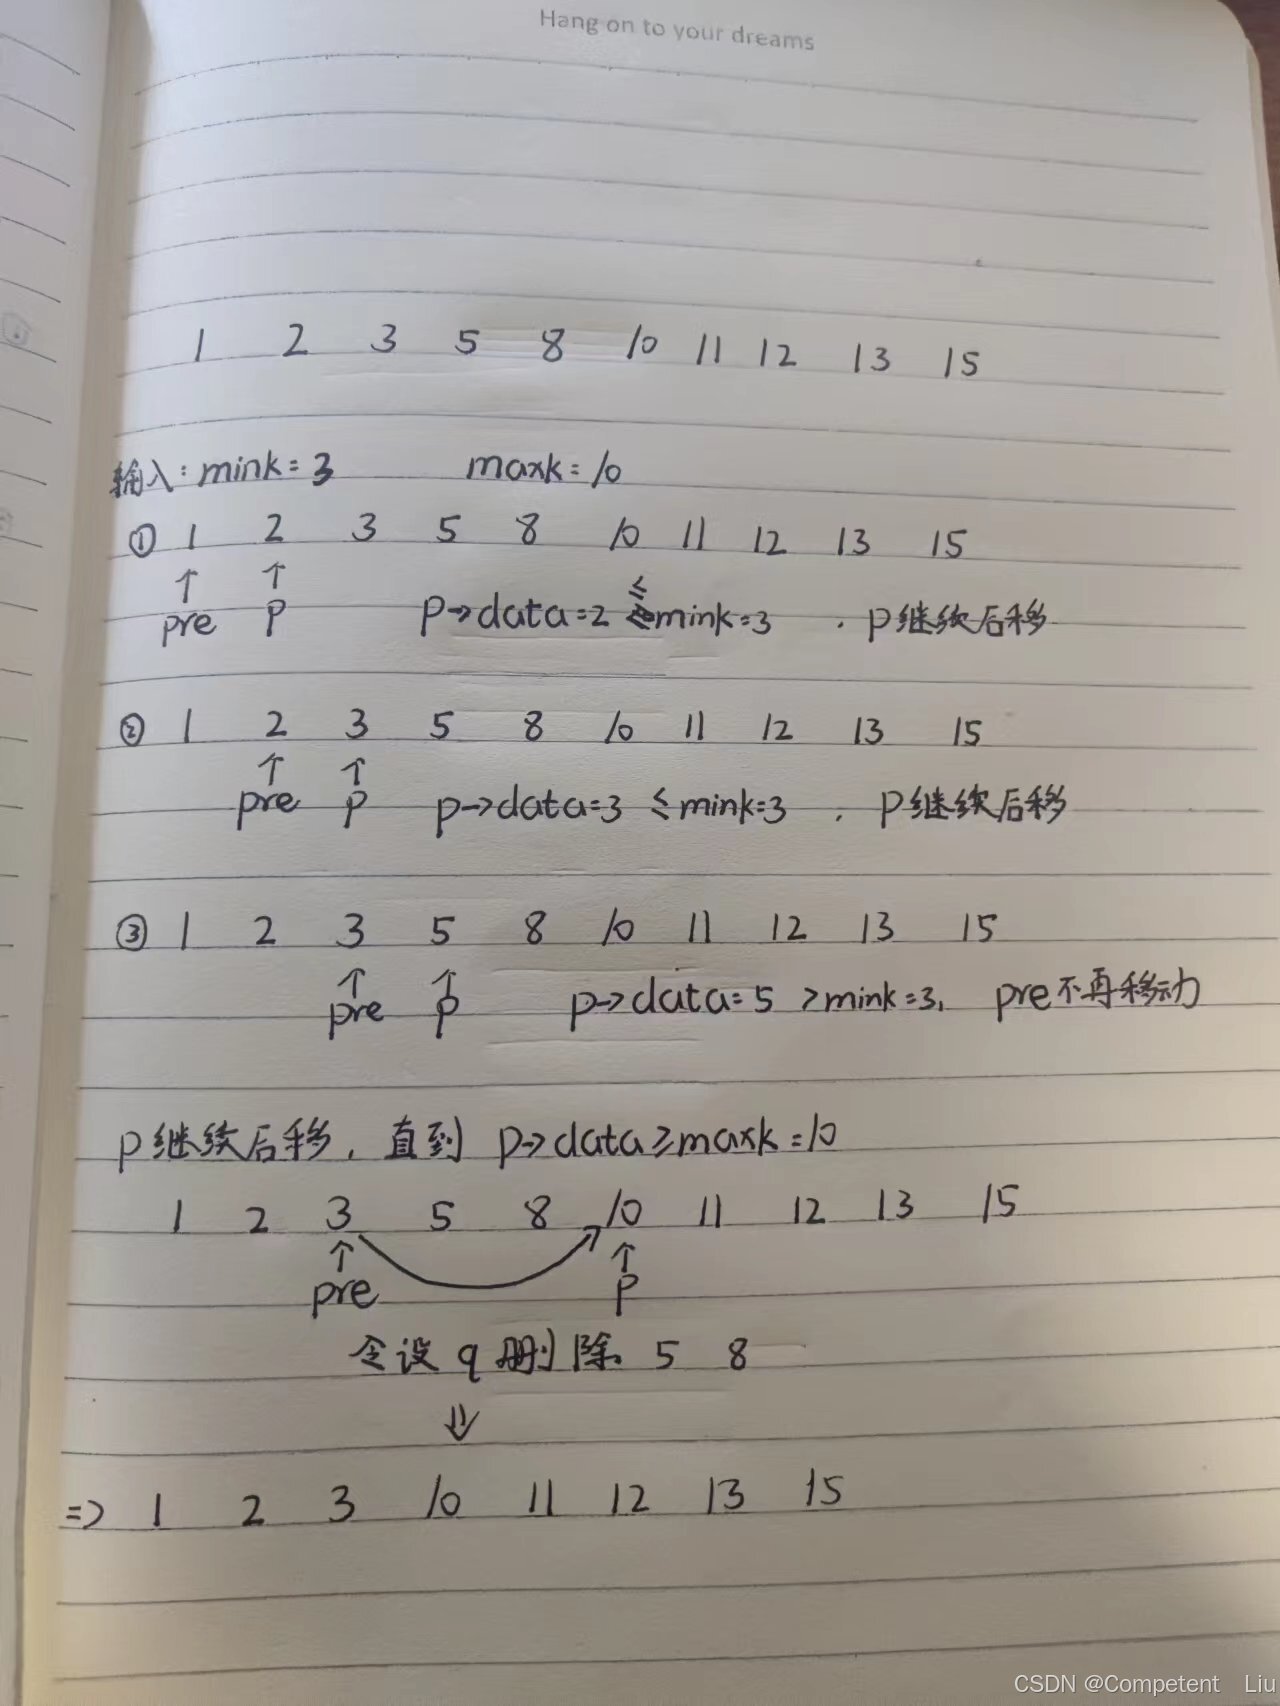 Hang on to your dreams
1 2 3 5 8 10 11 12 13 15
输入: mink=3 maxk=10
① 1 2 3 5 8 10 11 12 13 15
↑ ↑
pre p p→data=2 ≤mink=3 . p继续后移
② 1 2 3 5 8 10 11 12 13 15
↑ ↑
pre p p→data=3 ≤mink=3 . p继续后移
③ 1 2 3 5 8 10 11 12 13 15
↑ ↑
pre p p→data=5 >mink=3, pre不再移动
p继续后移, 直到 p→data≥maxk=10
1 2 3 5 8 10 11 12 13 15
↑ ↑
pre p
令设 q 删除 5 8
⇓
=> 1 2 3 10 11 12 13 15
CSDN @Competent Liu